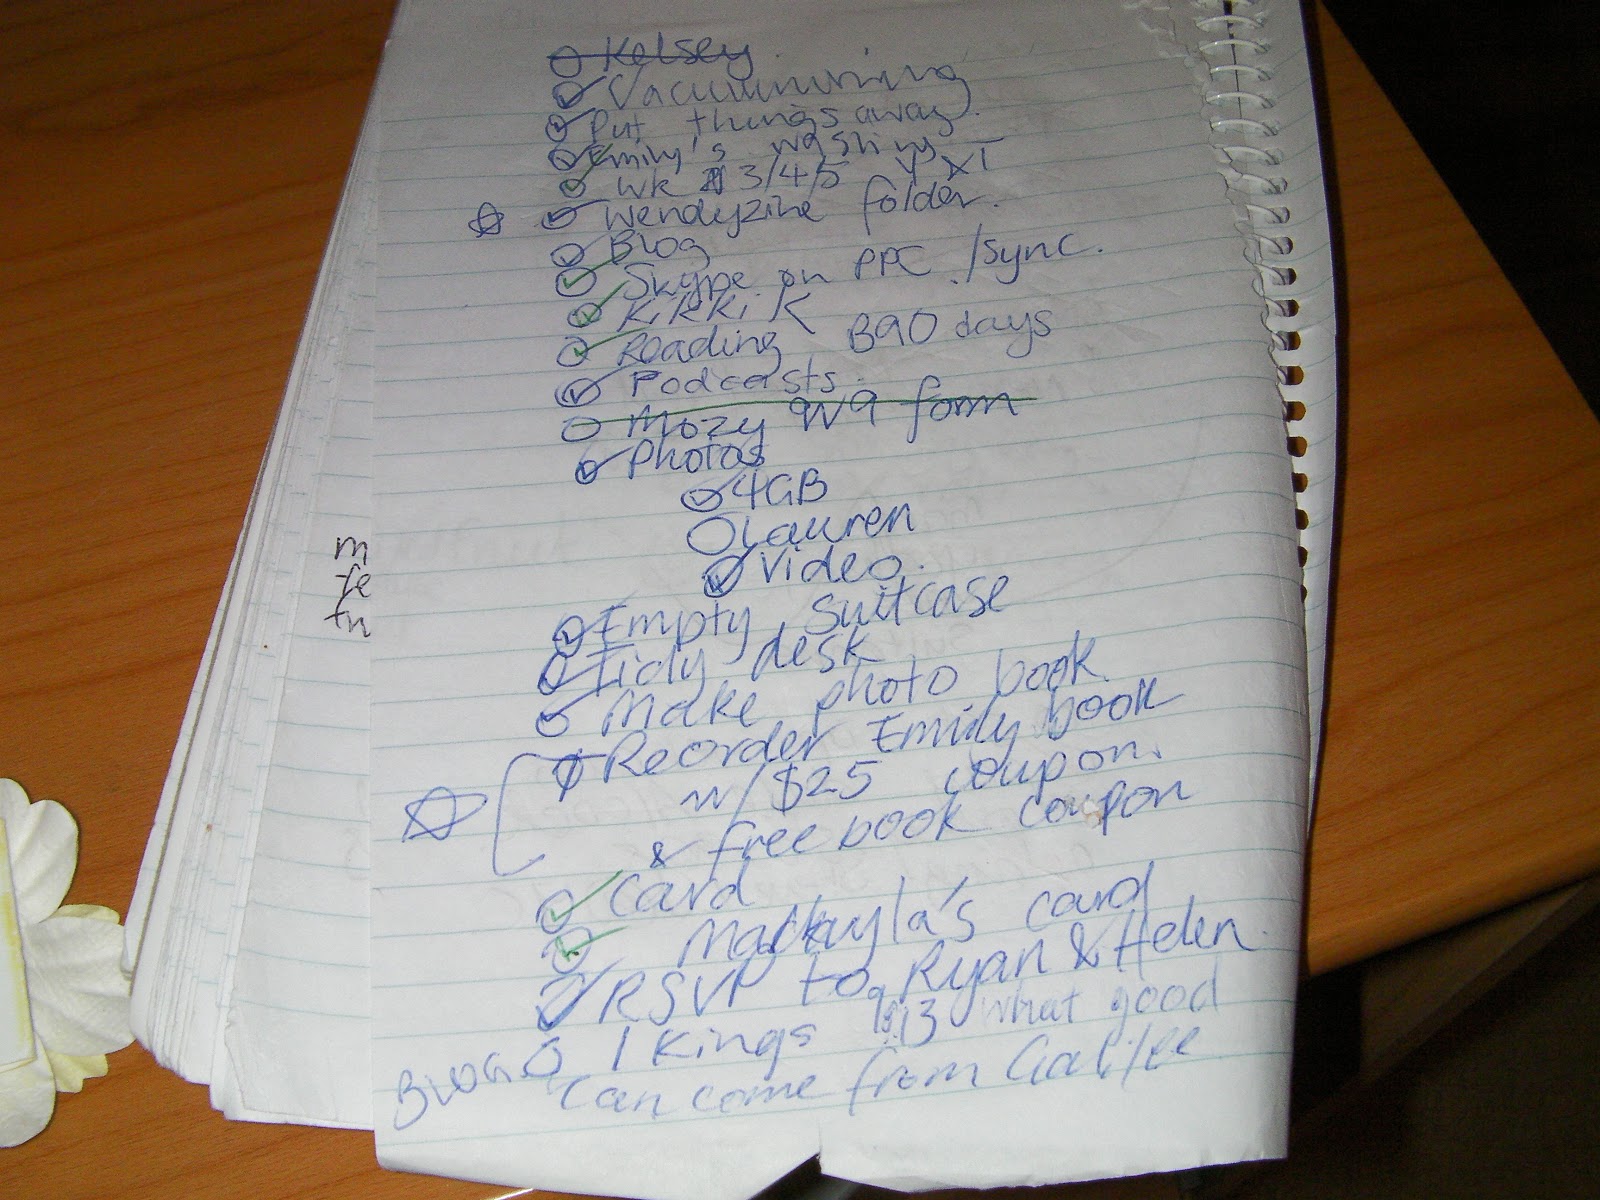 Kelsey
Vacuumning
Put things away.
Emily's washing
WK 3/4/5 YXT
Wendyzine folder.
Blog
Skype on PPC /sync.
Kikki K
Reading B90 days
Podcasts.
Mozy W9 form
Photos
4GB
Lauren
Video.
Empty suitcase
Tidy desk
Make photo book
Reorder Emily book
w/ $25 coupon.
& free book coupon
Card
Mackayla's card
RSVP to Ryan & Helen.
BLOG 1 Kings 9:13 what good
can come from Galilee
m
fe
tn